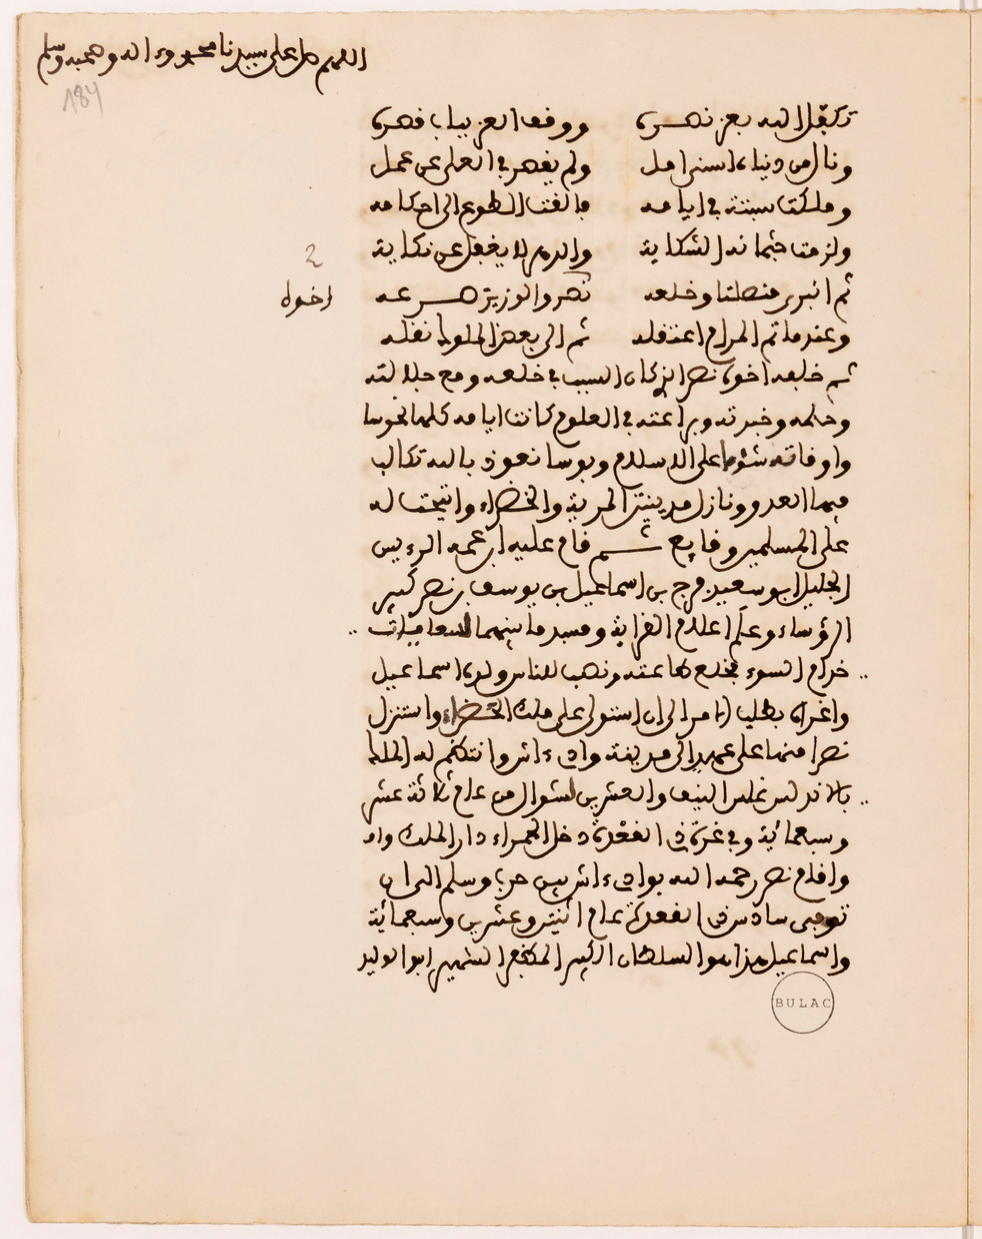 اللهم صل على سيدنا محمد وءاله وصحبه وسلم
184
تكفل الله بعز نصره ووقف العز بباب قصره
ونال من دنياه اسنى امل ولم يقصر في العلى عن عمل
وملكت سبتة في ايامه والفت الطوع الى احكامه
ولزمت جثمانه الشكاية والدهر لا يغفل عن نكاية
ثم انبرى منصلتا وخلعه نصر والوزير هـــر عه
اخوه
وعندما تم المرام اعتقله ثم الى بعض الملوك نقله
ثم خلعه اخوه نصر الزكان السبب في خلعه ومع جلالته
وحلمه وخبرته وبراعته في العلوم كانت ايامه كلها نحوسا
واوقاته شؤما على الاسلام وبوسا نعوذ بالله تكالب
فيها العدو ونازل مدينتي المرية والخضراء واتيحت له
على المسلمين وقايع ثـــم قام عليه ابن عمه الريس
الجليل ابو سعيد فرج بن اسماعيل بن يوسف بن نصر كبير
الرؤساء وعلم اعلام القرابة ومسد ما بينهما لسعايات
خدام السوء فخلع طاعته ونصب للناس ولده اسماعيل
واغراه بطلب الامر الى ان استولى على ملك الخضراء واستنزل
نصرا منها على عهد الى مدينة وادي ءاش وانتظم له الملك
بالاندلس غلس النيف والعشرين لشوال من عام ثلاثة عشر
وسبعمائة وفي غرة ذي القعدة دخل الحمراء دار الملك واو
واقام نصر رحمه الله بوادي ءاش بين حرب وسلم الى ان
توفي سادس ذي القعدة عام اثنين وعشرين وسبعمائة
واسماعيل هذا هو السلطان الكبير المظفر الشهير ابو الوليد
BULAC